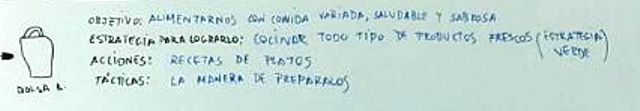 OBJETIVO: ALIMENTARNOS CON COMIDA VARIADA, SALUDABLE Y SABROSA
ESTRATEGIA PARA LOGRARLO: COCINAR TODO TIPO DE PRODUCTOS FRESCOS (ESTRATEGIA VERDE)
ACCIONES: RECETAS DE PLATOS
TÁCTICAS: LA MANERA DE PREPARALOS
BOLSA A.